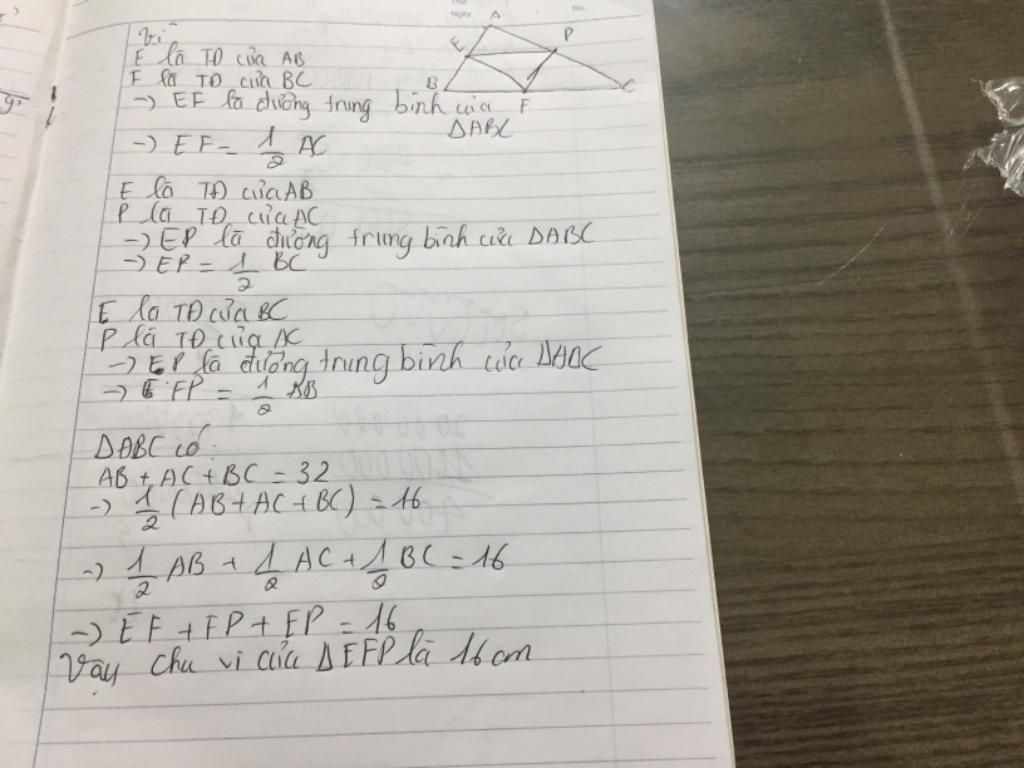 Vì
E là TĐ của AB
F là TĐ của BC
→ EF là đường trung bình của
ΔABC
→ EF = 1/2 AC
E là TĐ của AB
P là TĐ của AC
→ EP là đường trung bình của ΔABC
→ EP = 1/2 BC
E là TĐ của BC
P là TĐ của AC
→ EP là đường trung bình của ΔABC
→ FP = 1/2 AB
ΔABC có:
AB + AC + BC = 32
→ 1/2 (AB + AC + BC) = 16
→ 1/2 AB + 1/2 AC + 1/2 BC = 16
→ EF + FP + EP = 16
Vậy chu vi của ΔEFP là 16cm
A
E
P
B
F
C